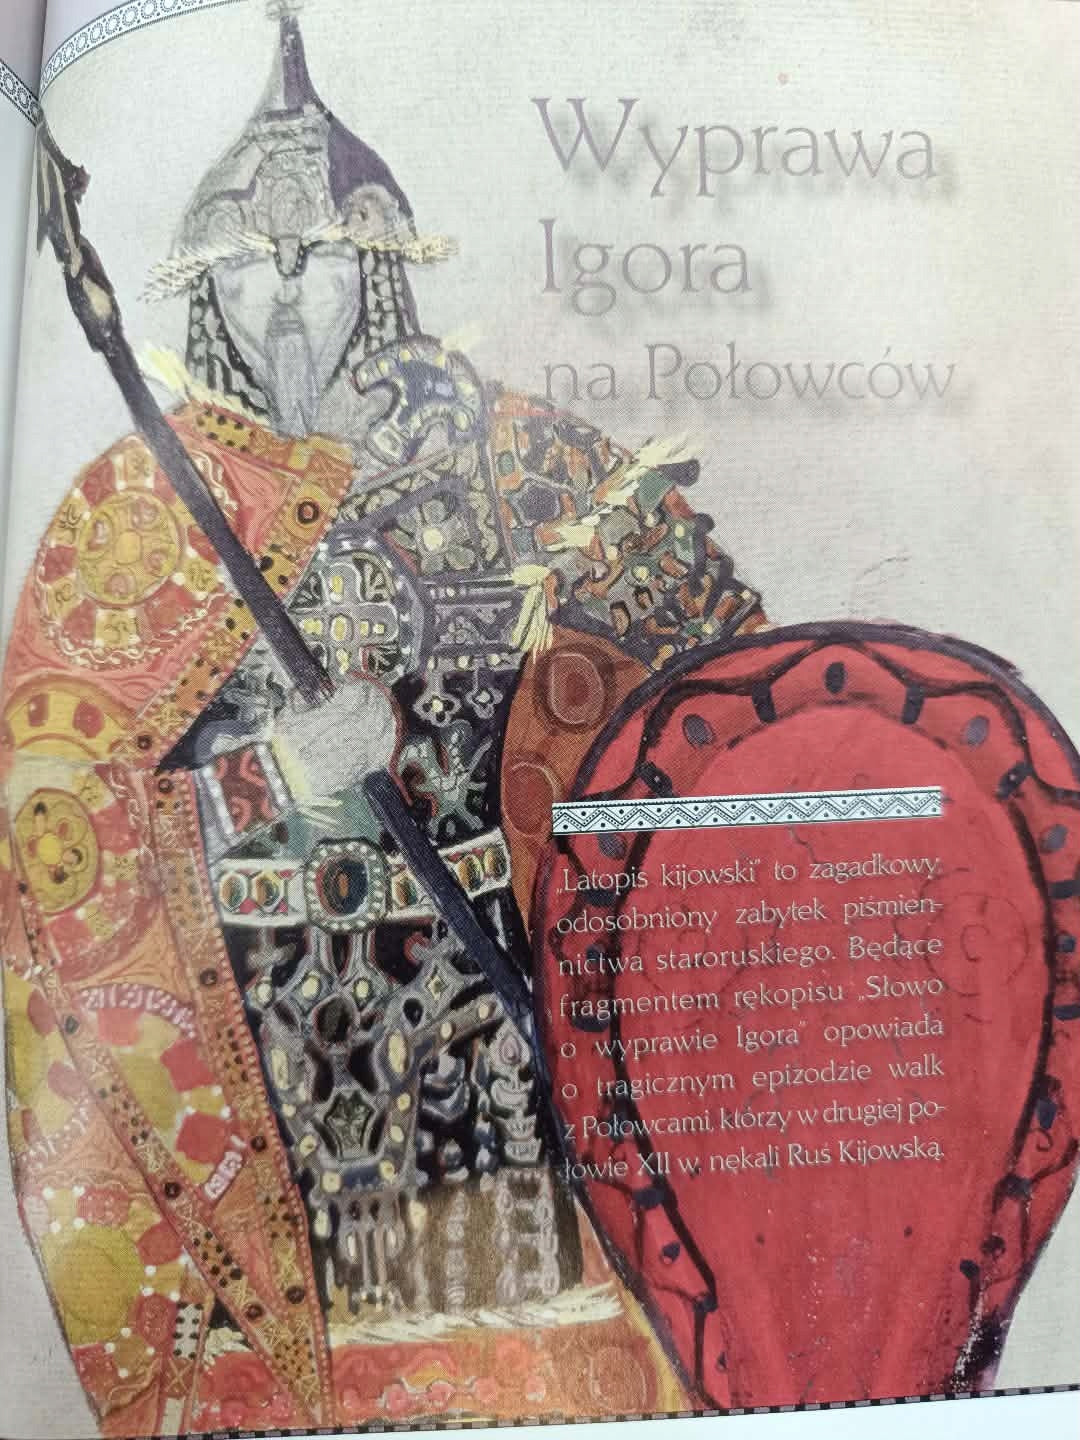 Wyprawa
Igora
na Połowców
„Latopis kijowski” to zagadkowy,
odosobniony zabytek piśmien-
nictwa staroruskiego. Będące
fragmentem rękopisu „Słowo
o wyprawie Igora” opowiada
o tragicznym epizodzie walk
z Połowcami, którzy w drugiej po-
łowie XII w. nękali Ruś Kijowską.